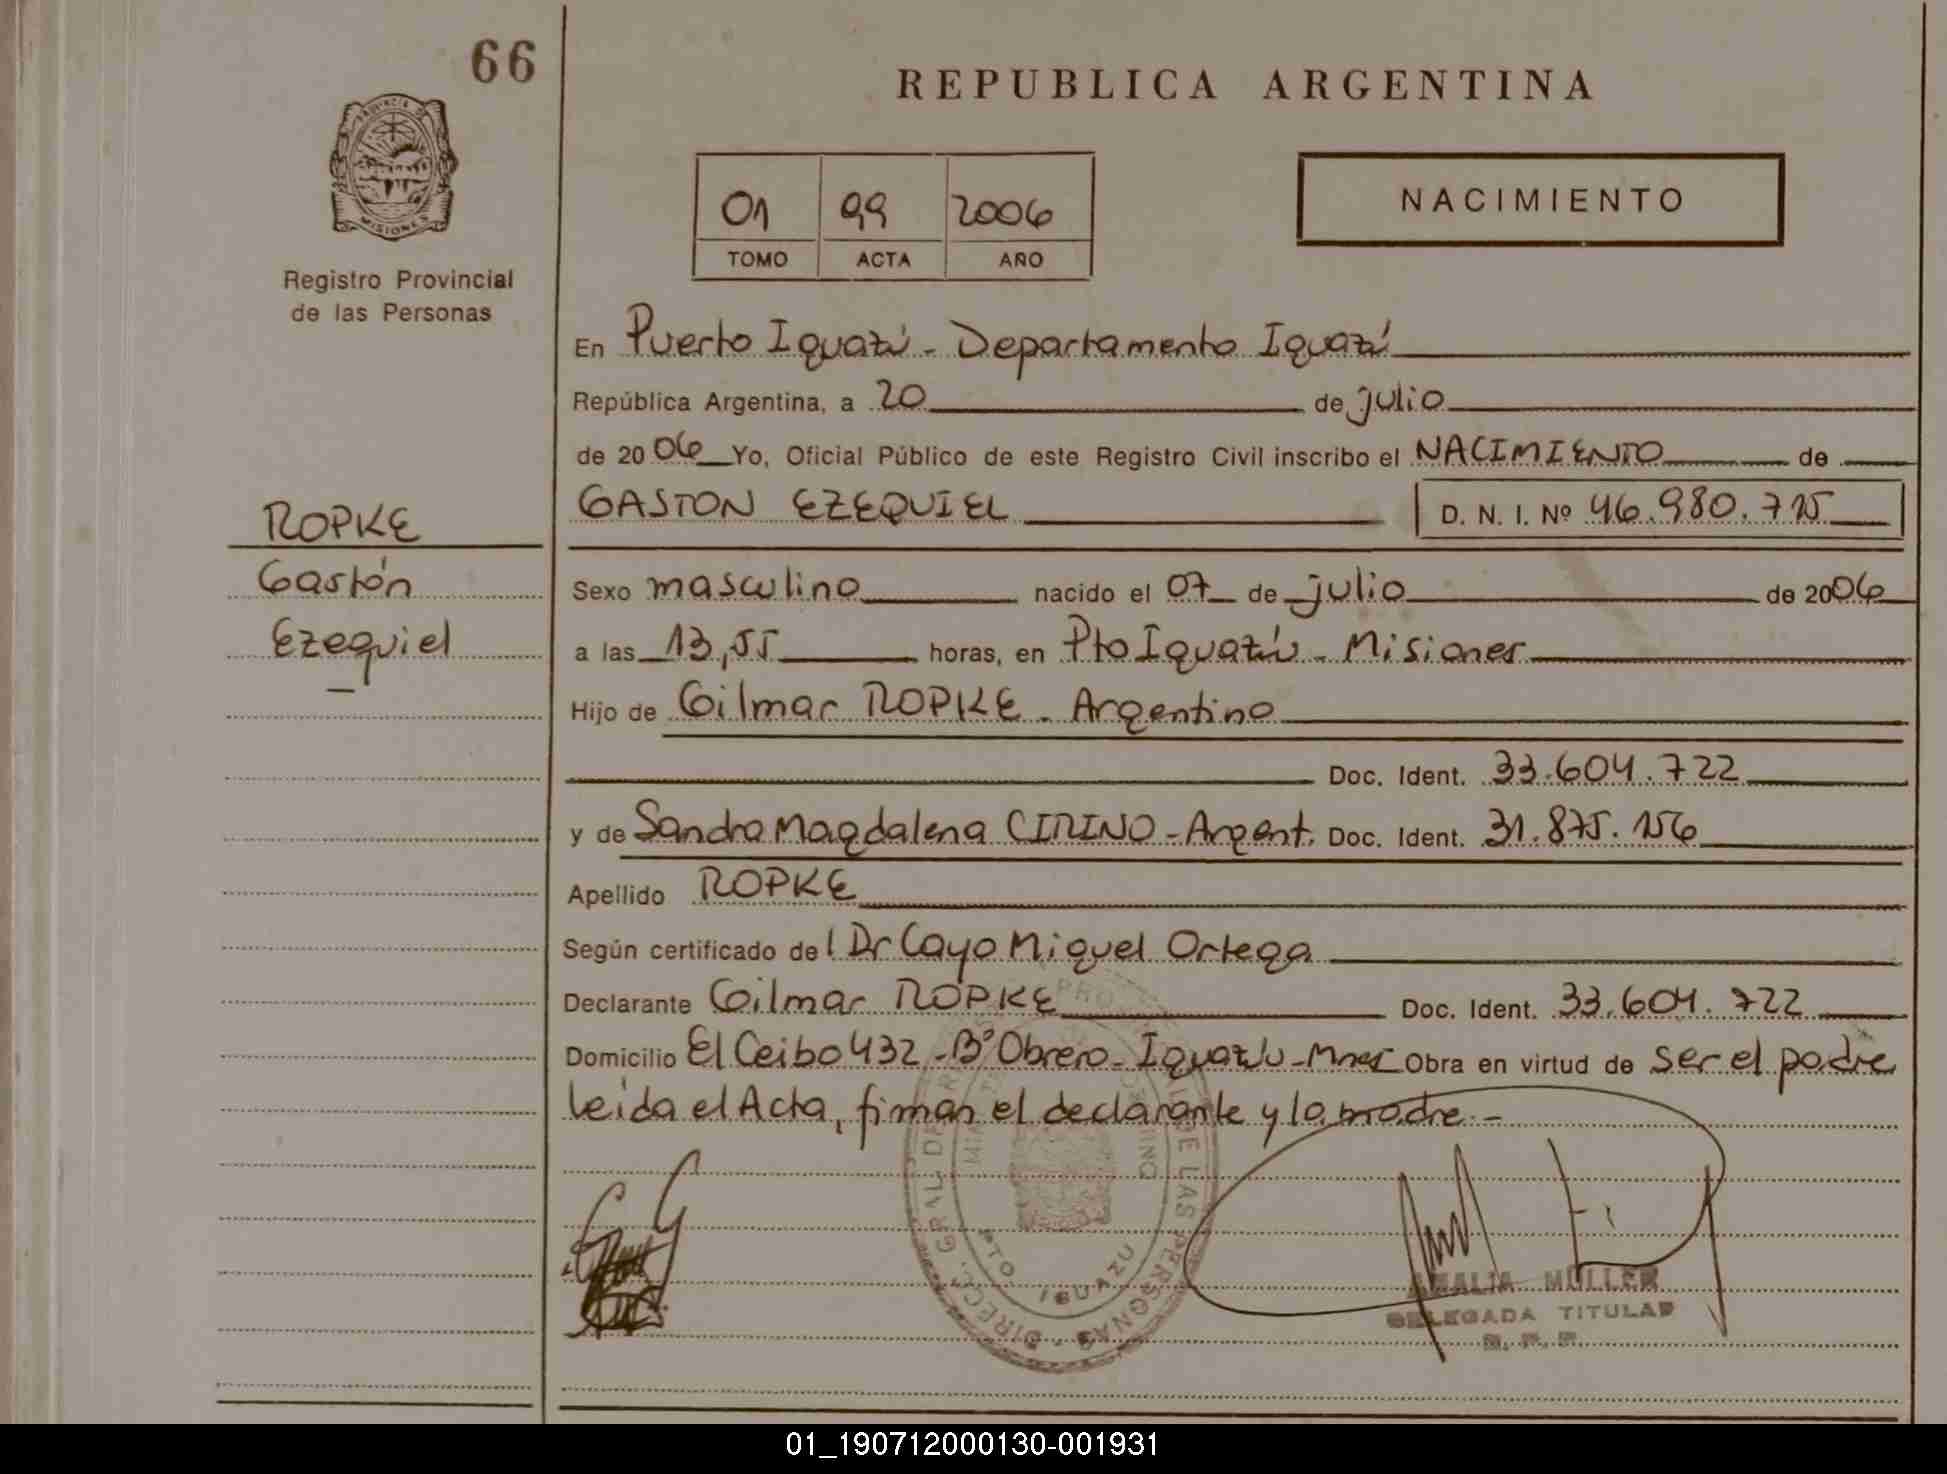 66
REPUBLICA ARGENTINA
PROVINCIA DE
MISIONES
Registro Provincial
de las Personas
01 99 2006
TOMO ACTA AÑO
NACIMIENTO
En Puerto Iguazú - Departamento Iguazú
República Argentina, a 20 de julio
de 2006 Yo, Oficial Público de este Registro Civil inscribo el NACIMIENTO de
GASTON EZEQUIEL D. N. I. Nº 46.980.715
ROPKE
Gastón
Ezequiel
Sexo masculino nacido el 07 de julio de 2006
a las 13,55 horas, en Pto Iguazú - Misiones
Hijo de Gilmar ROPKE - Argentino
Doc. Ident. 33.604.722
y de Sandra Magdalena CIRINO - Argent. Doc. Ident. 31.875.156
Apellido ROPKE
Según certificado del Dr Cayo Miguel Ortega
Declarante Gilmar ROPKE Doc. Ident. 33.604.722
Domicilio El Ceibo 432 - Bº Obrero - Iguazú - Mnes Obra en virtud de ser el padre
Leída el Acta, firman el declarante y la madre -
PTO. IGUAZU
AMALIA MULLER
DELEGADA TITULAR
R. P. P.
01_190712000130-001931